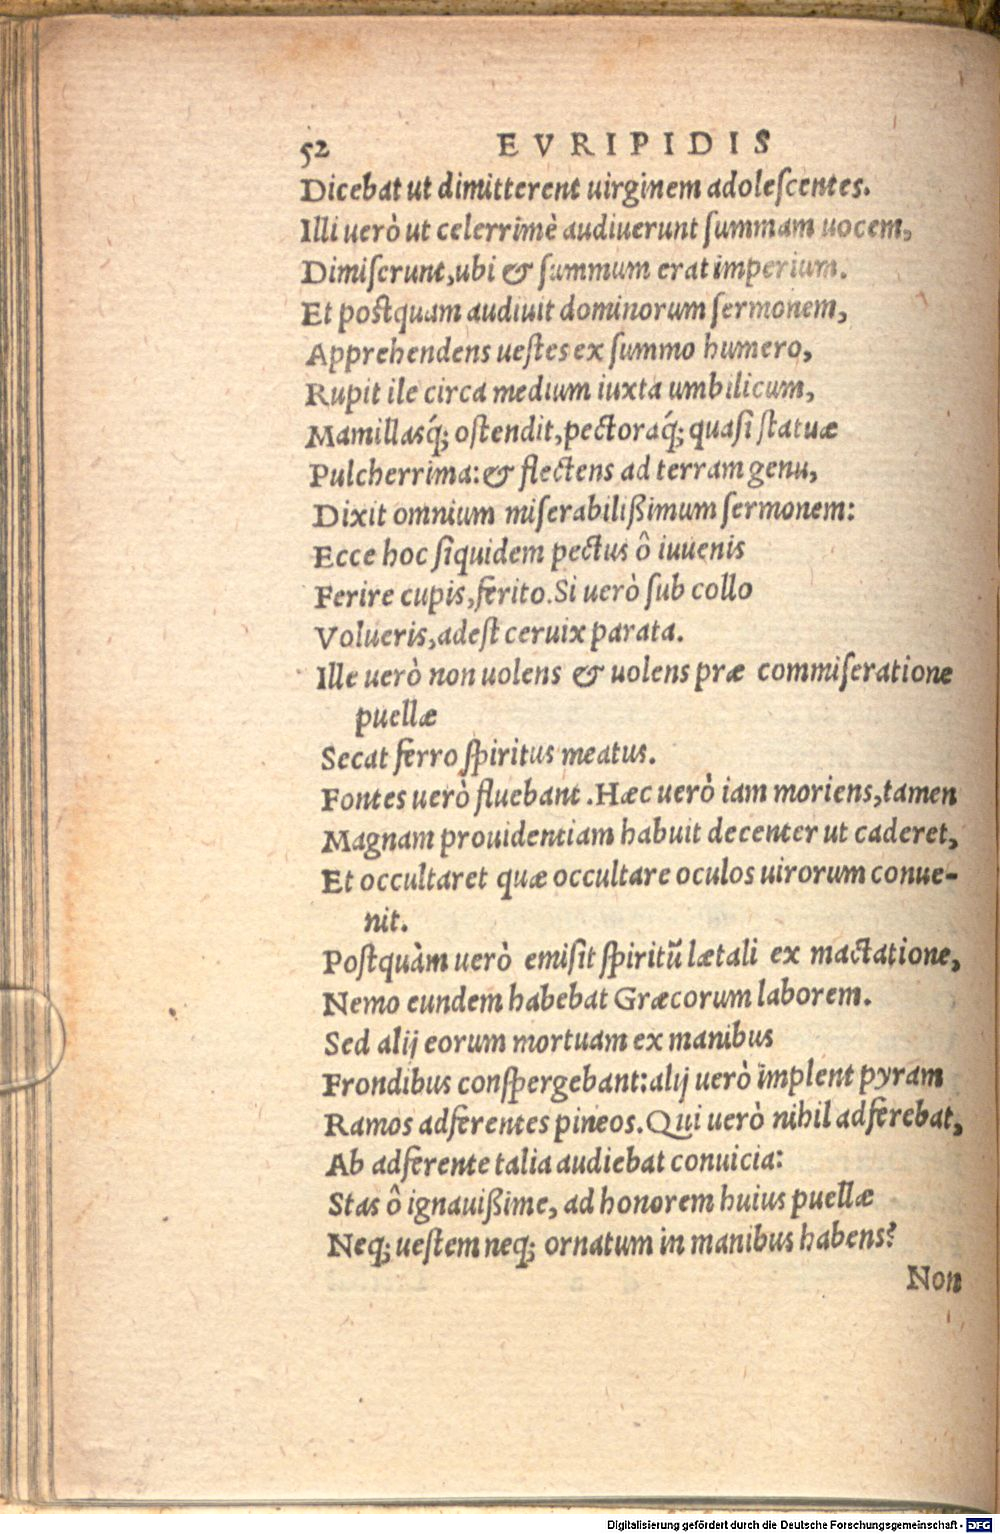 52 EVRIPIDIS
Dicebat ut dimitterent uirginem adoleſcentes.
Illi uerò ut celerrimè audiuerunt ſummam uocem,
Dimiſerunt, ubi & ſummum erat imperium.
Et poſtquam audiuit dominorum ſermonem,
Apprehendens ueſtes ex ſummo humero,
Rupit ile circa medium iuxta umbilicum,
Mamillasq́; oſtendit, pectoraq́; quaſi ſtatuæ
Pulcherrima: & flectens ad terram genu,
Dixit omnium miſerabilißimum ſermonem:
Ecce hoc ſiquidem pectus ô iuuenis
Ferire cupis, ferito. Si uerò ſub collo
Volueris, adeſt ceruix parata.
Ille uerò non uolens & uolens præ commiſeratione
puellæ
Secat ferro ſpiritus meatus.
Fontes uerò fluebant. Hæc uerò iam moriens, tamen
Magnam prouidentiam habuit decenter ut caderet,
Et occultaret quæ occultare oculos uirorum conue-
nit.
Poſtquàm uerò emiſit ſpiritũ lætali ex mactatione,
Nemo eundem habebat Græcorum laborem.
Sed alij eorum mortuam ex manibus
Frondibus conſpergebant: alij uerò implent pyram
Ramos adferentes pineos. Qui uerò nihil adferebat,
Ab adferente talia audiebat conuicia:
Stas ô ignauißime, ad honorem huius puellæ
Neq; ueſtem neq; ornatum in manibus habens?
Non
Digitalisierung gefördert durch die Deutsche Forschungsgemeinschaft - DFG